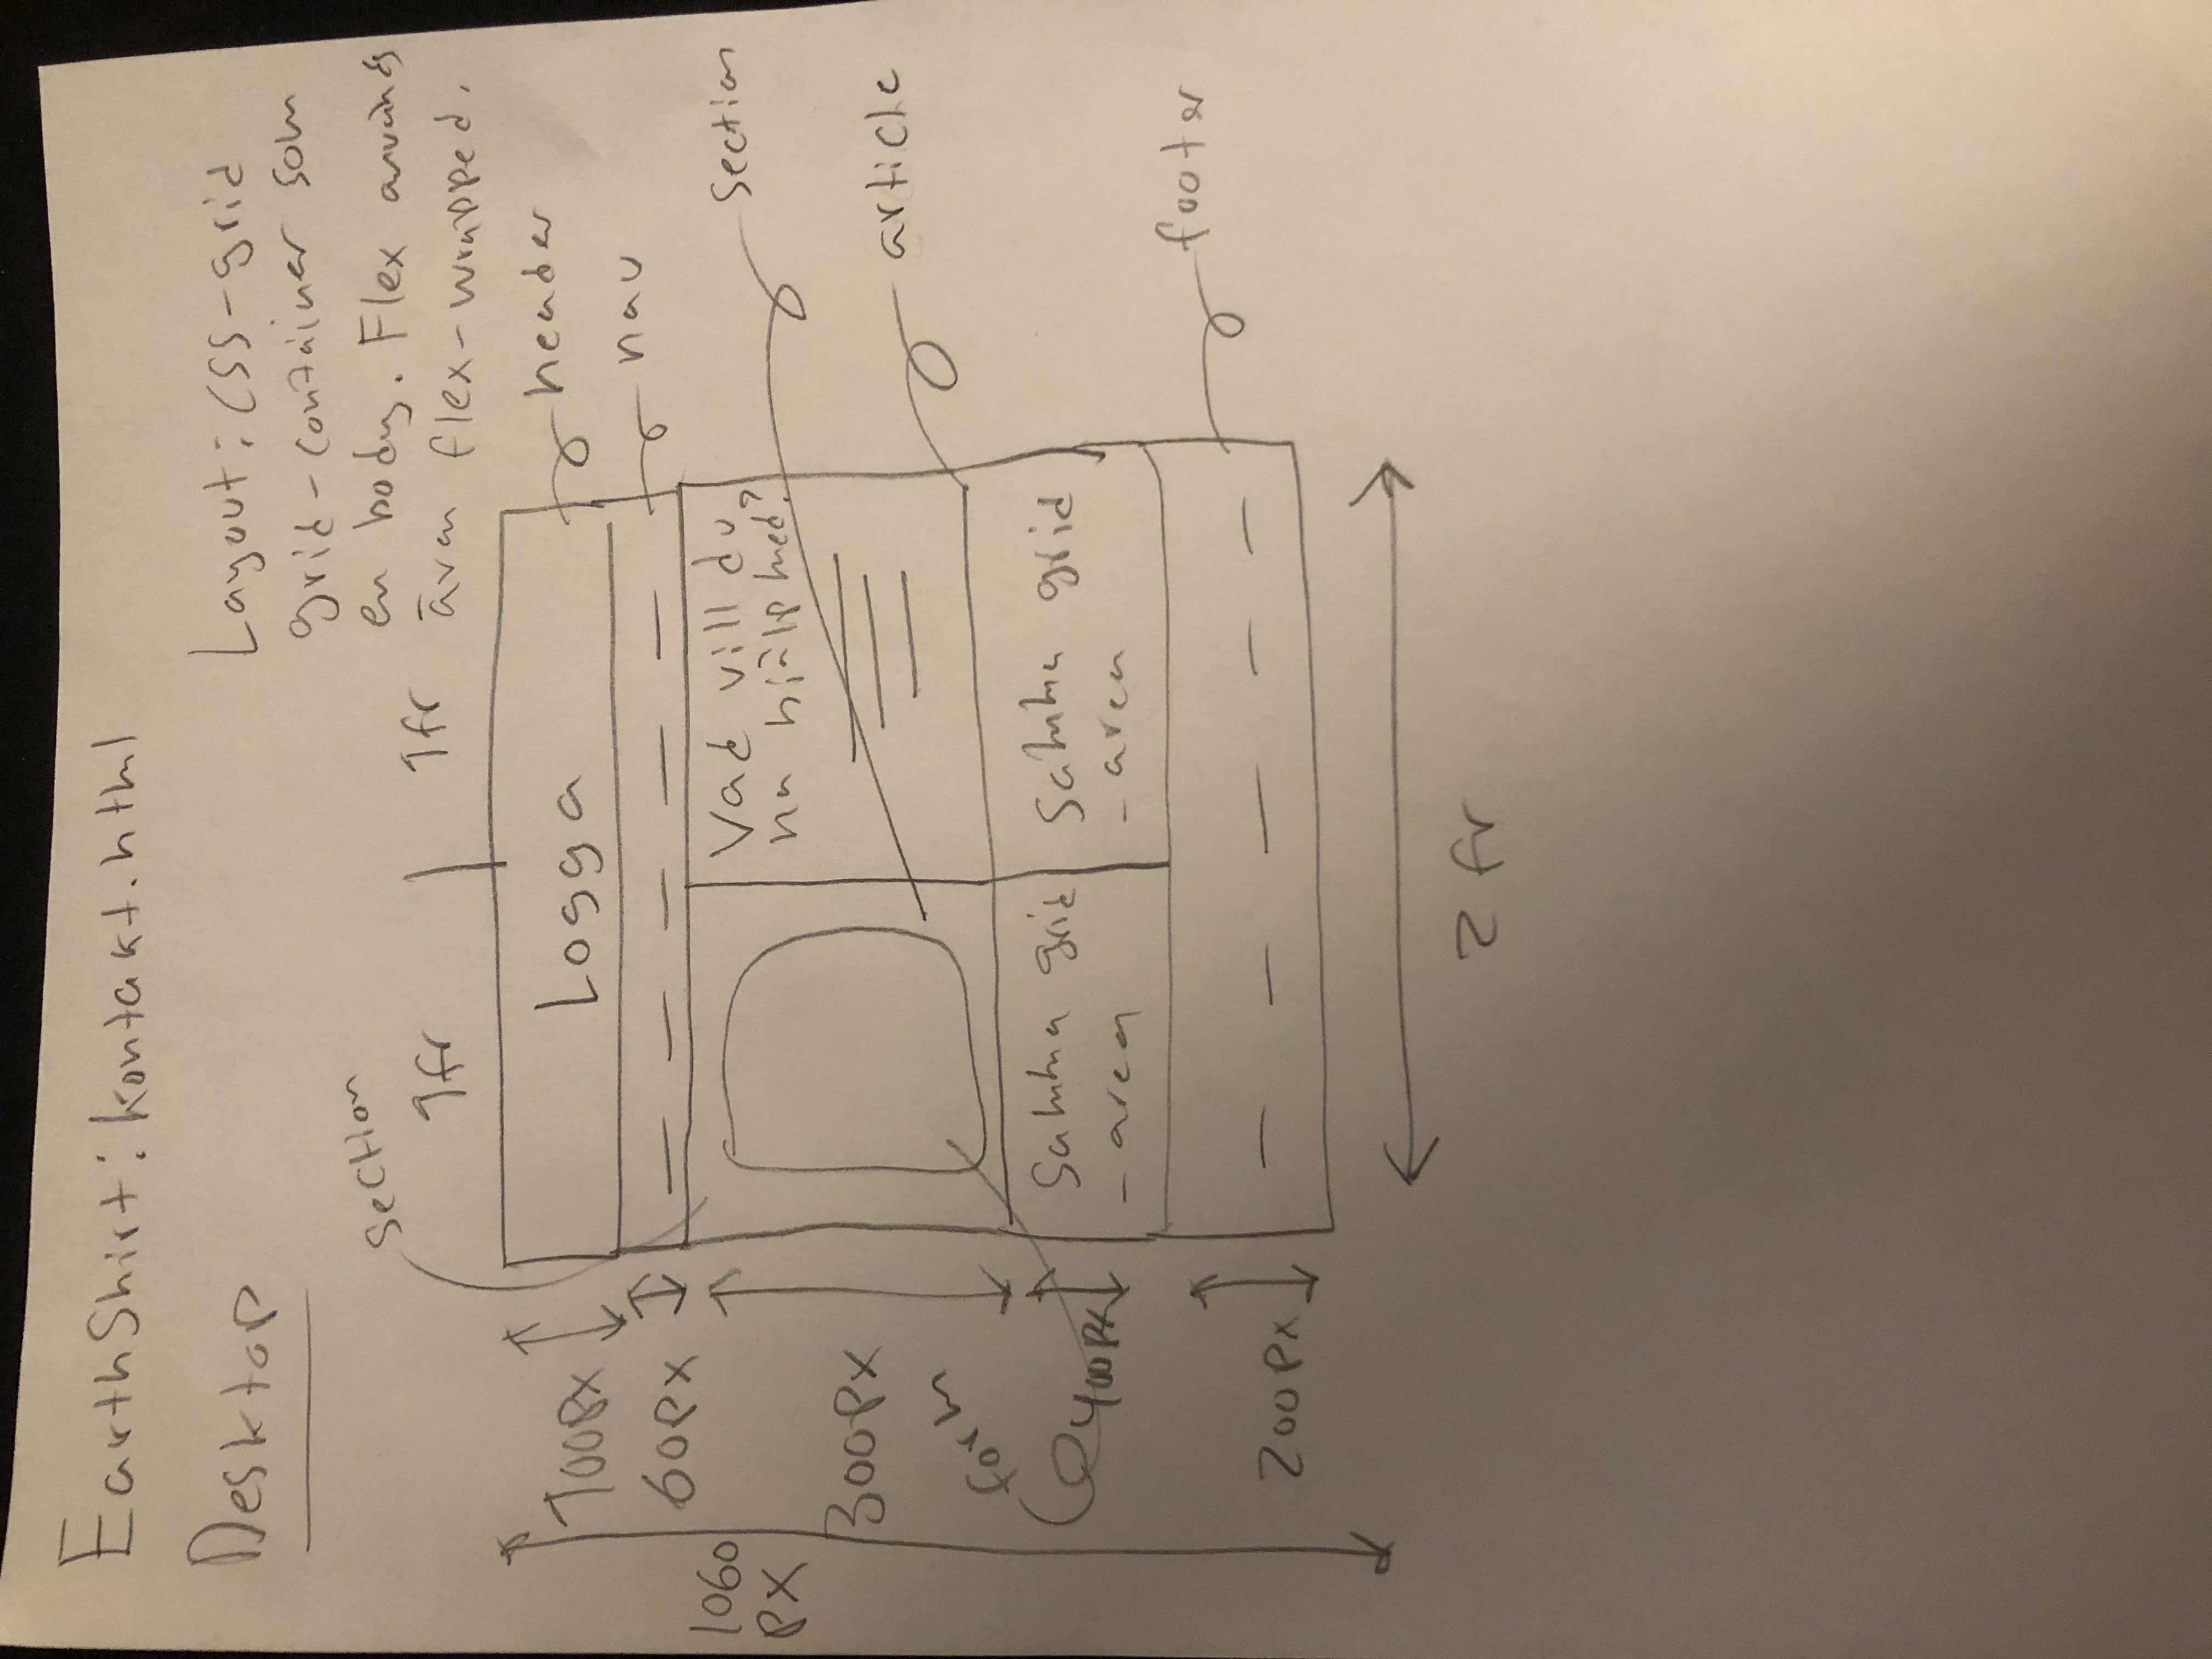 EarthShirt: kontakt.html
Desktop
Layout: CSS-grid
grid-container som
en body. Flex används
även flex-wrapped.
section
1fr
1fr
100px
Logga
header
60px
nav
1060
px
Vad vill du
na hjälp med?
section
300px
article
form
400px
Samma grid
-area
Samma grid
-area
footer
200px
2 fr